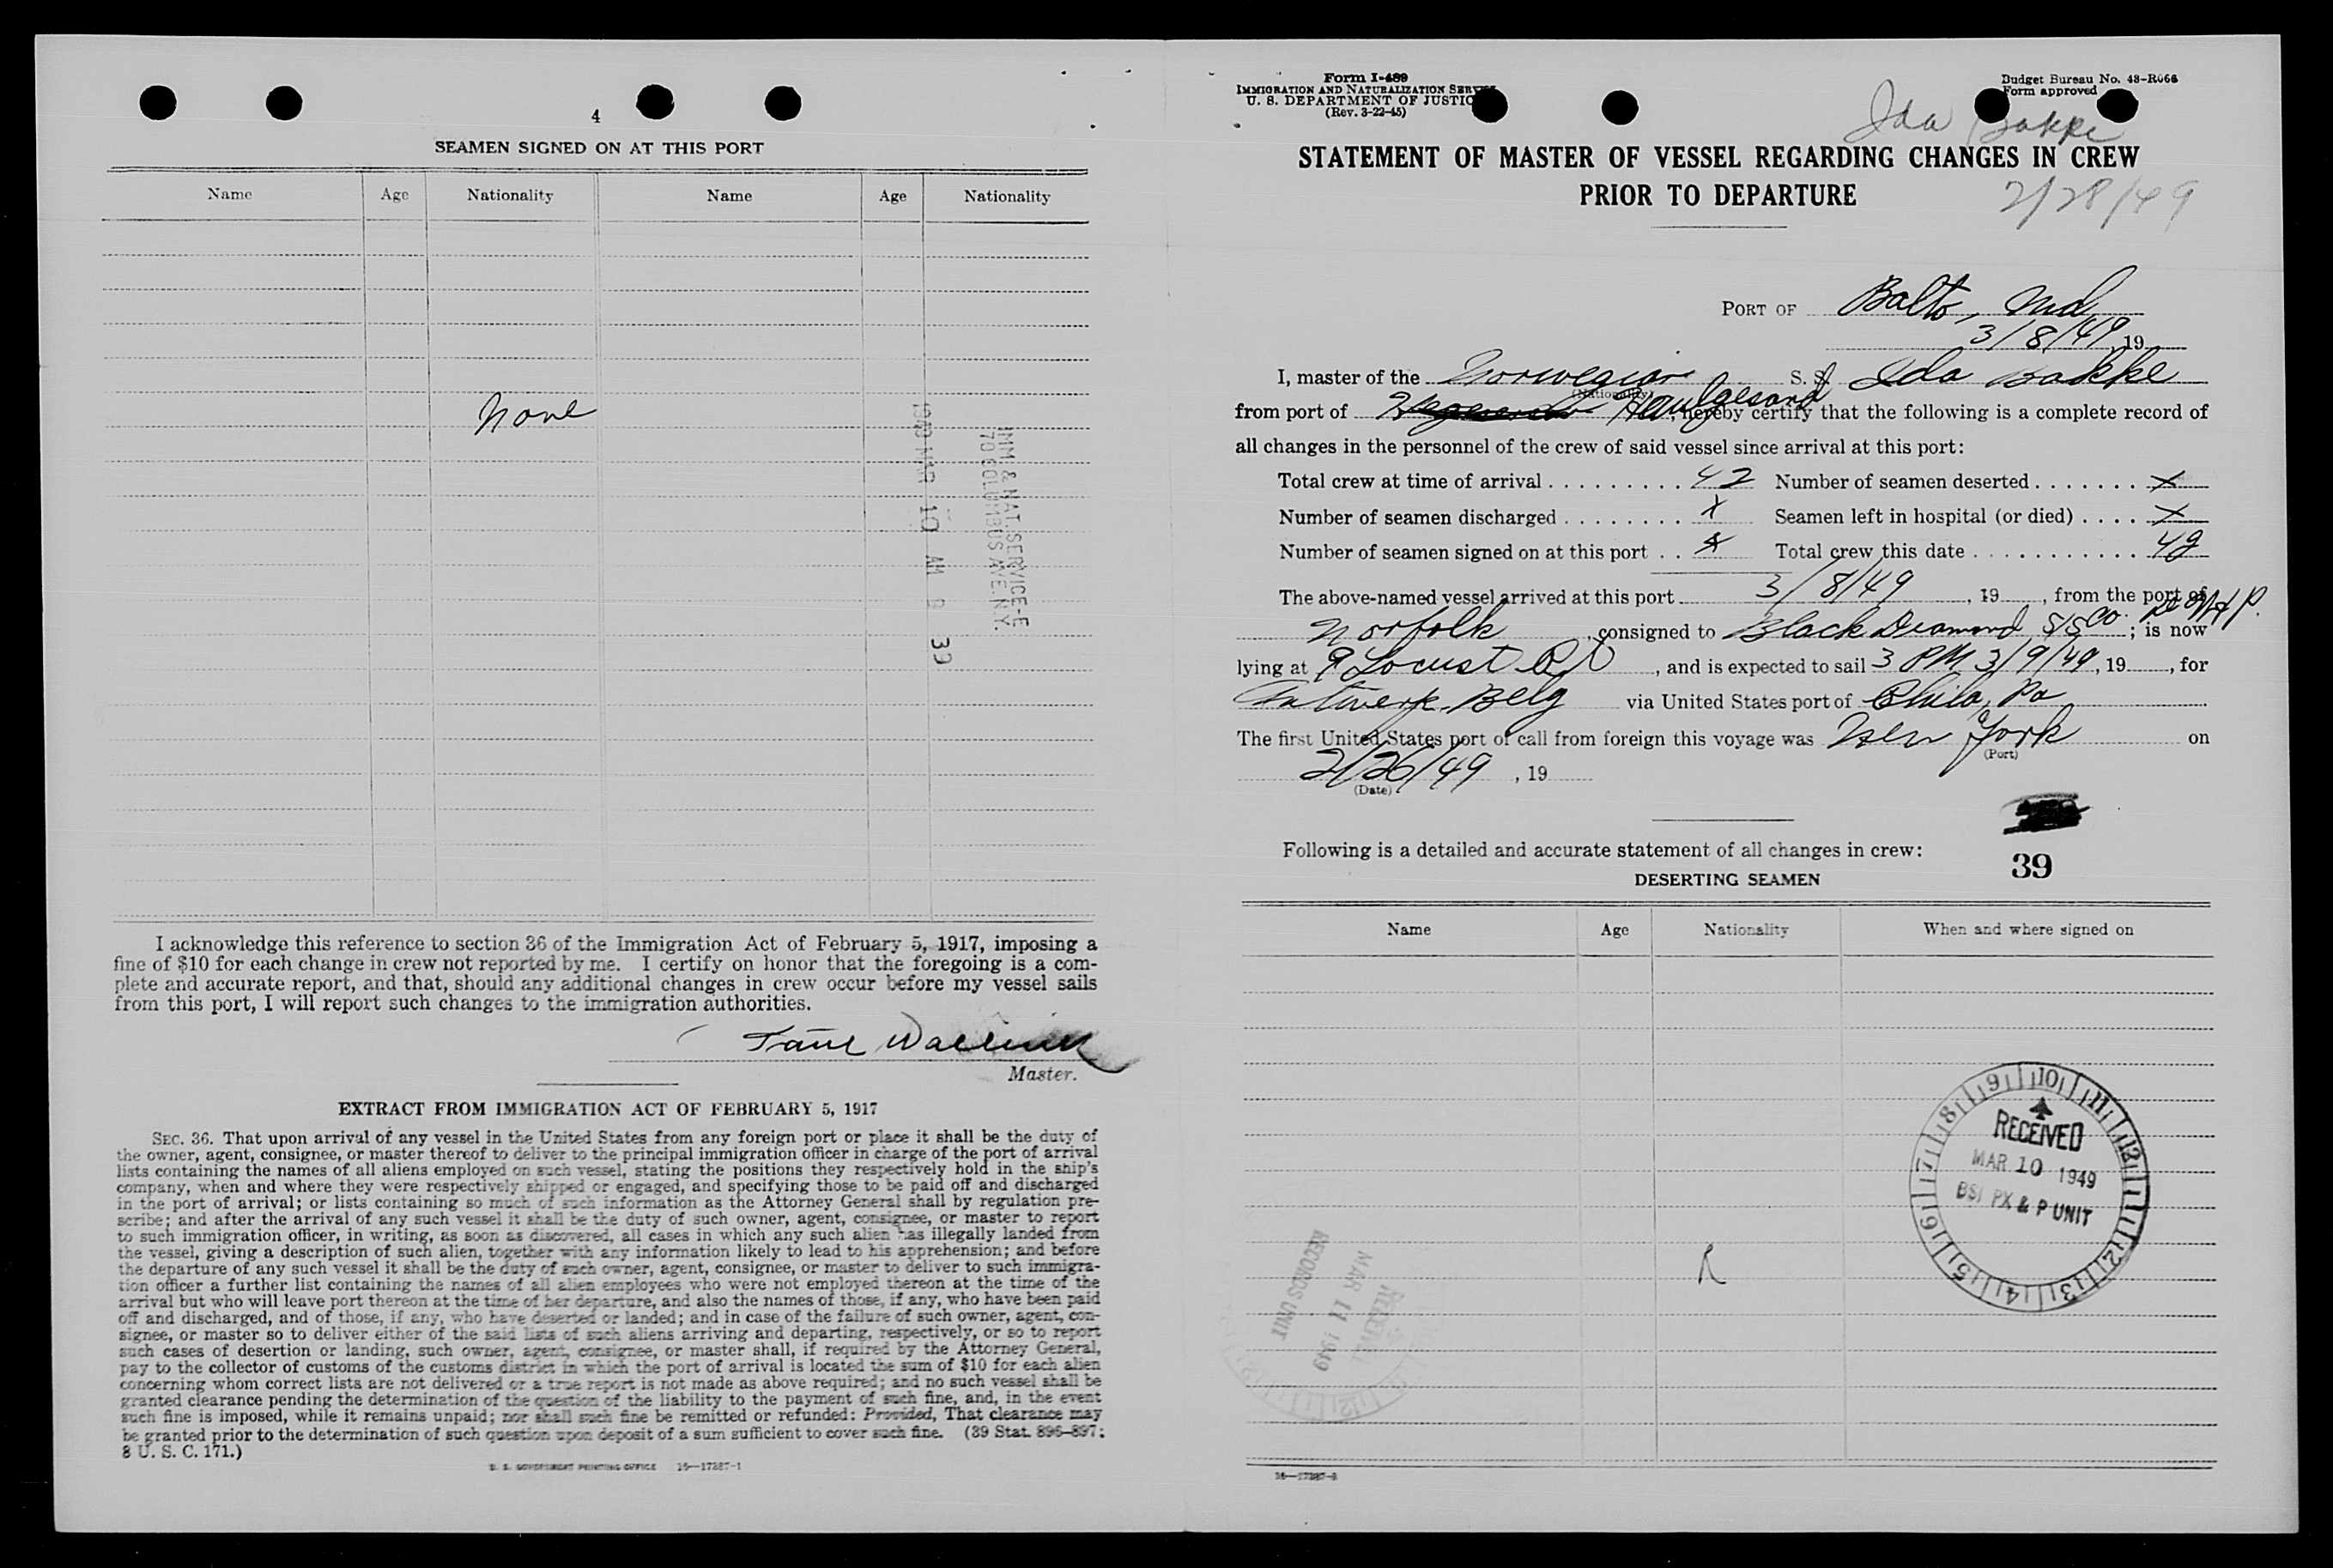 4
SEAMEN SIGNED ON AT THIS PORT
Name Age Nationality Name Age Nationality
None
IMM. & NAT. SERVICE-E
70 COLUMBUS AVE. N.Y.
1949 MAR 10 AM 9 39
I acknowledge this reference to section 36 of the Immigration Act of February 5, 1917, imposing a
fine of $10 for each change in crew not reported by me. I certify on honor that the foregoing is a com-
plete and accurate report, and that, should any additional changes in crew occur before my vessel sails
from this port, I will report such changes to the immigration authorities.
Master.
EXTRACT FROM IMMIGRATION ACT OF FEBRUARY 5, 1917
SEC. 36. That upon arrival of any vessel in the United States from any foreign port or place it shall be the duty of
the owner, agent, consignee, or master thereof to deliver to the principal immigration officer in charge of the port of arrival
lists containing the names of all aliens employed on such vessel, stating the positions they respectively hold in the ship's
company, when and where they were respectively shipped or engaged, and specifying those to be paid off and discharged
in the port of arrival; or lists containing so much of such information as the Attorney General shall by regulation pre-
scribe; and after the arrival of any such vessel it shall be the duty of such owner, agent, consignee, or master to report
to such immigration officer, in writing, as soon as discovered, all cases in which any such alien has illegally landed from
the vessel, giving a description of such alien, together with any information likely to lead to his apprehension; and before
the departure of any such vessel it shall be the duty of such owner, agent, consignee, or master to deliver to such immigra-
tion officer a further list containing the names of all alien employees who were not employed thereon at the time of the
arrival but who will leave port thereon at the time of her departure, and also the names of those, if any, who have been paid
off and discharged, and of those, if any, who have deserted or landed; and in case of the failure of such owner, agent, con-
signee, or master so to deliver either of the said lists of such aliens arriving and departing, respectively, or so to report
such cases of desertion or landing, such owner, agent, consignee, or master shall, if required by the Attorney General,
pay to the collector of customs of the customs district in which the port of arrival is located the sum of $10 for each alien
concerning whom correct lists are not delivered or a true report is not made as above required; and no such vessel shall be
granted clearance pending the determination of the question of the liability to the payment of such fine, and, in the event
such fine is imposed, while it remains unpaid; nor shall such fine be remitted or refunded: Provided, That clearance may
be granted prior to the determination of such question upon deposit of a sum sufficient to cover such fine. (39 Stat. 896-897;
8 U. S. C. 171.)
U. S. GOVERNMENT PRINTING OFFICE 16—17287-1
Form I-489
IMMIGRATION AND NATURALIZATION SERVICE
U. S. DEPARTMENT OF JUSTICE
(Rev. 3-22-45)
Budget Bureau No. 43-R066
Form approved
Ida Bakke
STATEMENT OF MASTER OF VESSEL REGARDING CHANGES IN CREW
PRIOR TO DEPARTURE
2/28/49
PORT OF Balto, Md
3/8/49, 19
I, master of the Norwegian S. S. Ida Bakke
(Nationality)
from port of Haugesand, hereby certify that the following is a complete record of
all changes in the personnel of the crew of said vessel since arrival at this port:
Total crew at time of arrival 42 Number of seamen deserted x
Number of seamen discharged x Seamen left in hospital (or died) x
Number of seamen signed on at this port x Total crew this date 42
The above-named vessel arrived at this port 3/8/49, 19, from the port of
Norfolk, consigned to Black Diamond S/S Co.; is now
lying at 9 Locust Pt, and is expected to sail 3 PM 3/9/49, 19, for
Antwerp Belg via United States port of Phila, Pa
The first United States port of call from foreign this voyage was New York on
(Port)
2/26/49, 19
(Date)
Following is a detailed and accurate statement of all changes in crew:
39
DESERTING SEAMEN
Name Age Nationality When and where signed on
9 10 11 12 1 2 3 4 5 6 7 8
RECEIVED
MAR 10 1949
BSI PX & P UNIT
R
RECEIVED
MAR 11 1949
RECORDS UNIT
16—17287-1